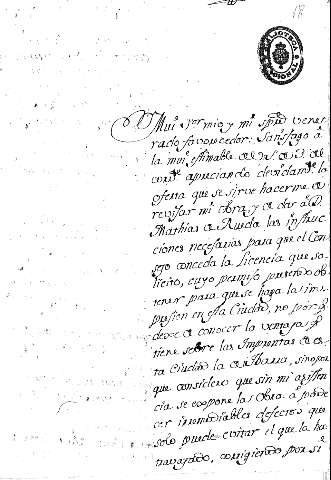 18
Mui Sr mio y mi spre vene-
rado favorecedor: Satisfago à
la mui estimable de
corrte apreciando devidamte la
oferta que se sirve hacerme de
revisar mi obra, y de dar à Dn
Mathias de Rueda las instruc-
ciones necesarias para que el Con-
sejo conceda la licencia que so-
licito, cuyo permiso pretendo ob-
tener para que se haga la im-
presion en essa Ciudad, no porq
dexe de conocer la ventaja q
tiene sobre las Imprentas de es-
ta Ciudad la de Ibarra, sino por
que considero que sin mi assisten-
cia se expone la Obra à pade-
cer irremediables defectos que
solo puede evitar el que la ha
travajado, corrigiendo por si